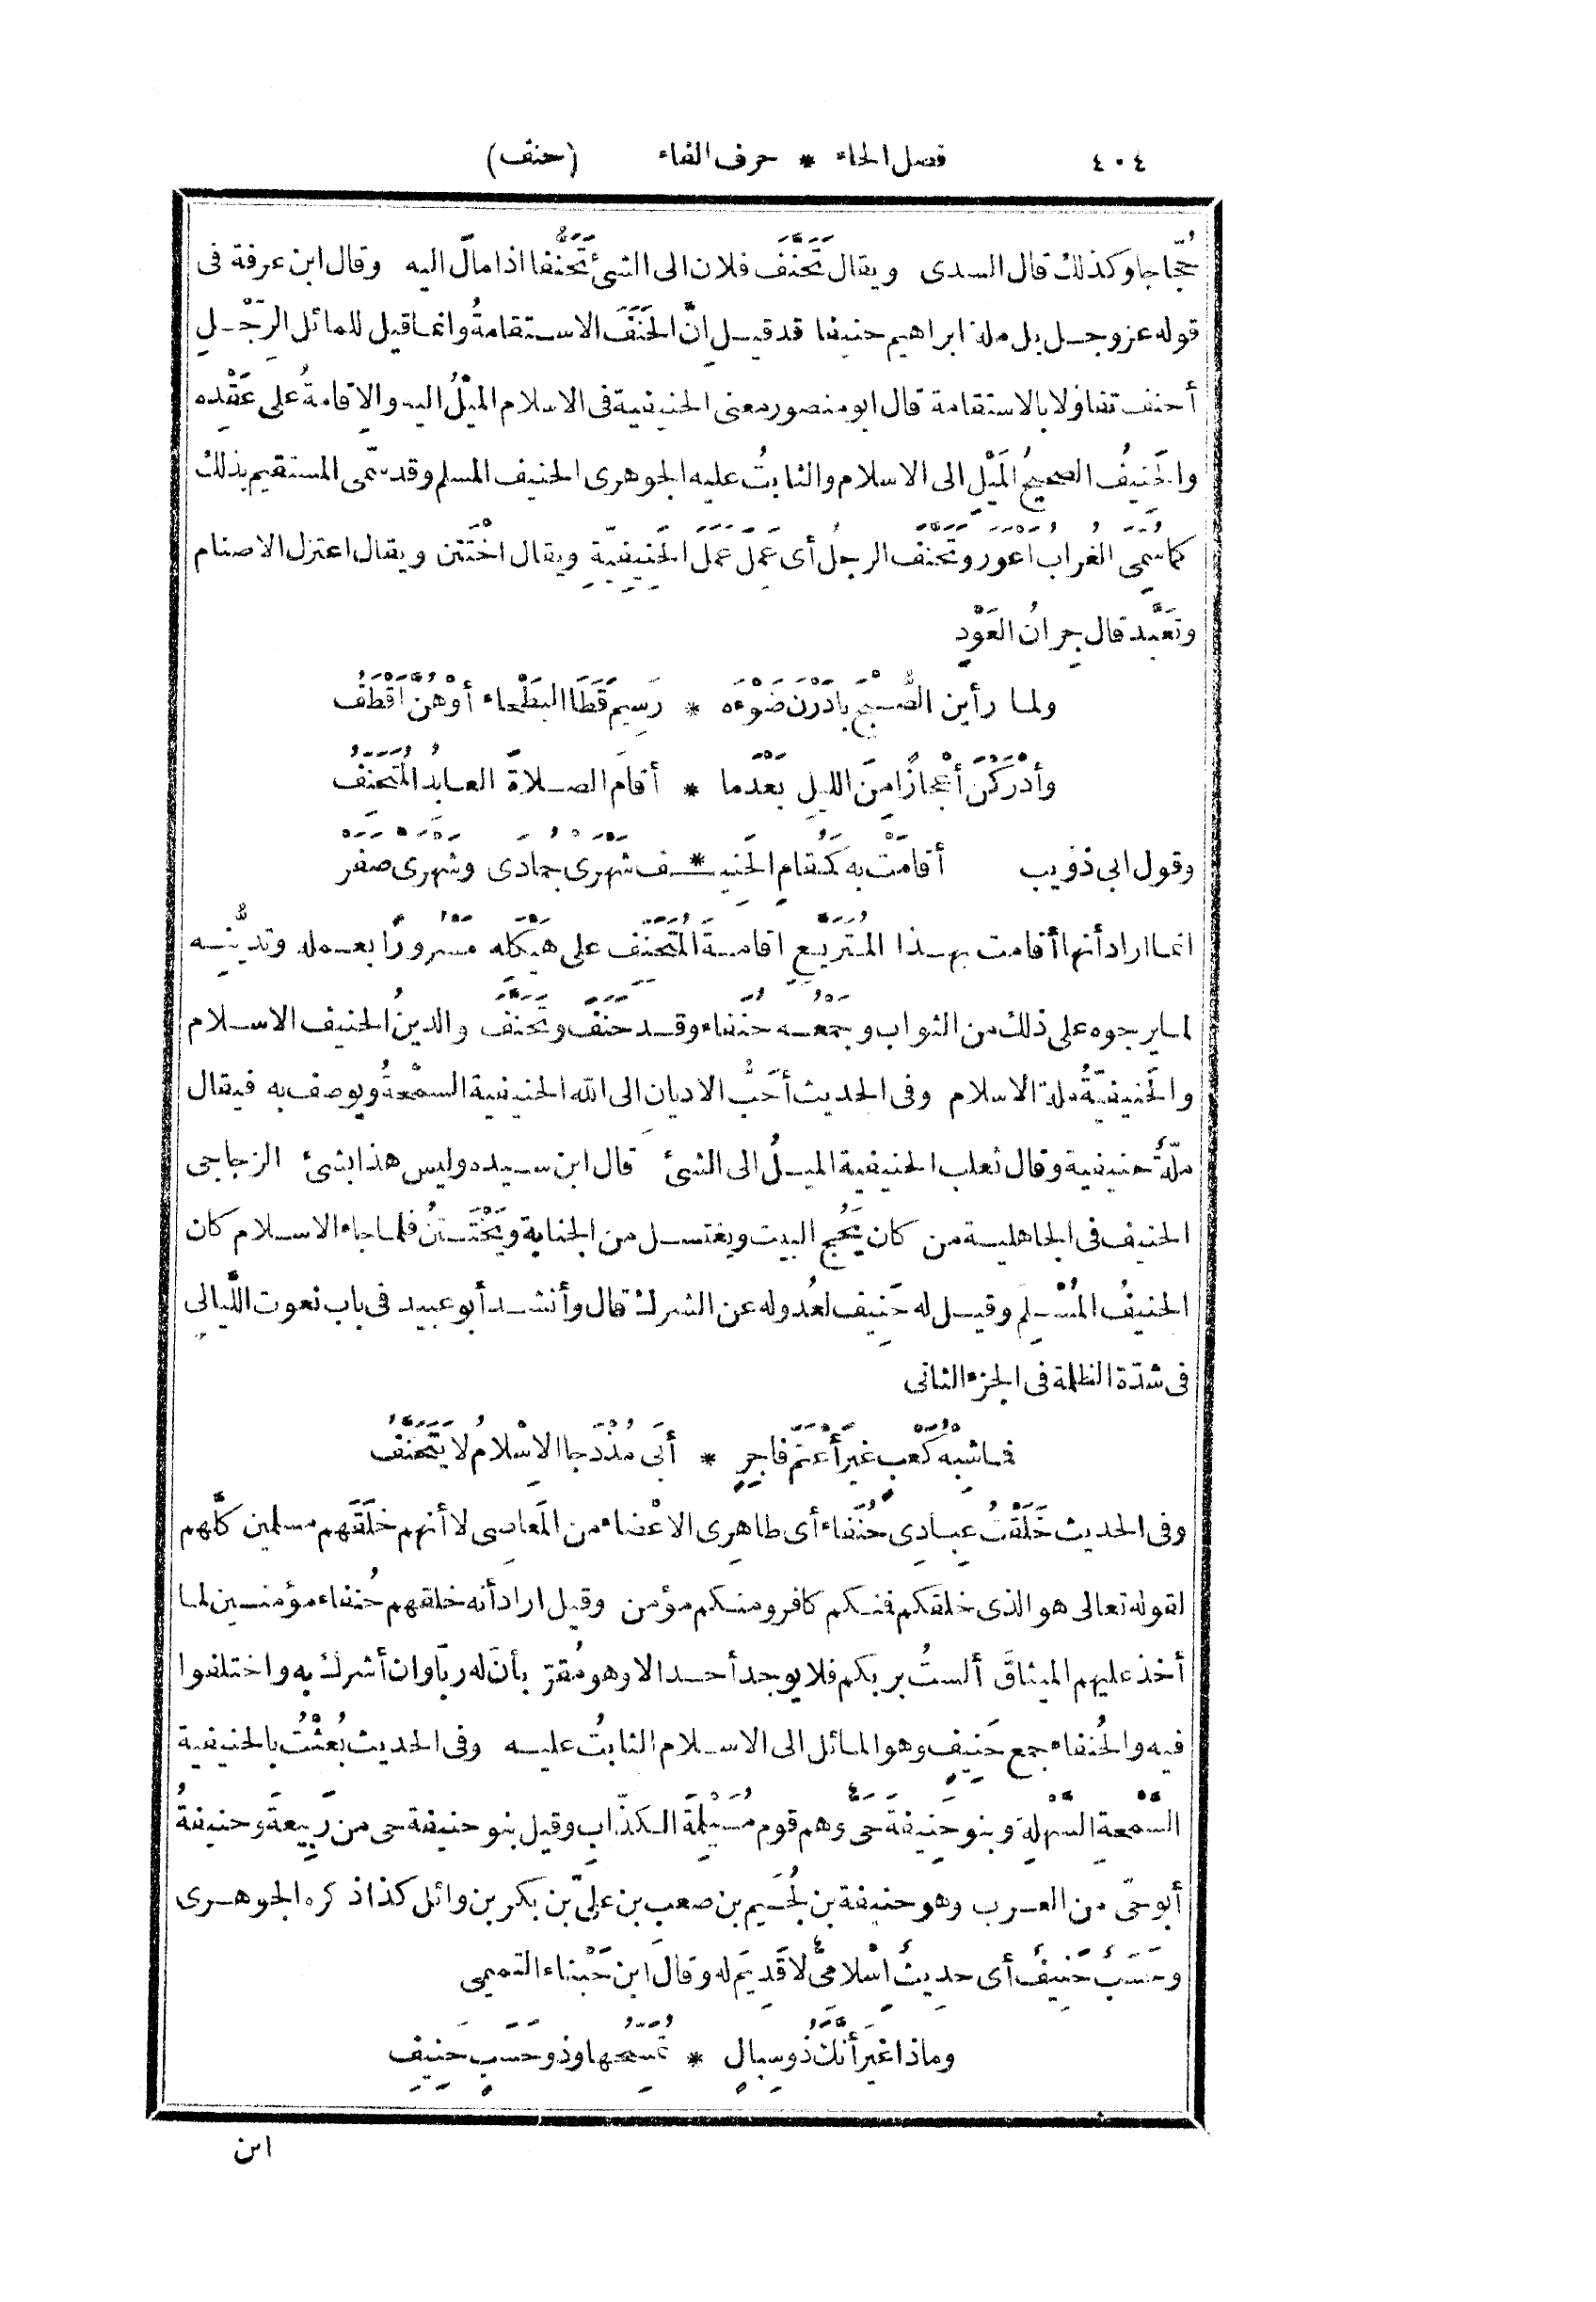 ٤٠٤ فصل الحاء * حرف الفاء (حنف)
حُجّاجا وكذلك قال السدى ويقال تَحَنَّفَ فلان الى الشئ تَحَنُّفا اذا مال اليه وقال ابن عرفة فى
قوله عز وجل بل ملة ابراهيم حنيفا قد قيل إنّ الحَنَفَ الاستقامةُ وانما قيل للمائل الرِّجْلِ
أحنف تفاؤلا بالاستقامة قال ابو منصور معنى الحنيفية فى الاسلام المَيْلُ اليه والإقامةُ على عَقْدِه
والحَنِيفُ الصحيحُ المَيْلِ الى الاسلام والثابتُ عليه الجوهرى الحنيف المسلم وقد سمّى المستقيم بذلك
كما سُمِّىَ الغُرابُ أعورَ وتَحَنَّفَ الرجلُ أى عَمِلَ عَمَلَ الحَنِيفِيّةِ ويقال اخْتَتَن ويقال اعتزل الاصنام
وتَعَبَّد قال جِرانُ العَوْدِ
ولما رأين الصُّبْحَ بادَرْنَ ضَوْءَه * رَسِيمَ قَطَا البَطْحاء أوْ هُنَّ أَقْطَفُ
وأدْرَكْنَ أعْجازًا مِنَ الليلِ بَعْدَما * أقامَ الصلاةَ العابدُ المُتَحَنِّفُ
وقول ابى ذؤيب أقامَتْ به كمُقامِ الحَنِيـ * ـف شَهْرَىْ جُمادَى وشَهْرَىْ صَفَرْ
انما اراد أنها أقامت بهذا المُتَرَبَّعِ اقامةَ المُتَحَنِّفِ على هَيْكَلِه مَسْرورًا بعمله وتديُّنِه
لما يرجوه على ذلك من الثواب وجمعه حُنَفاء وقد حَنَفَ وتَحَنَّفَ والدينُ الحنيف الاسلام
والحَنيفيّةُ ملة الاسلام وفى الحديث أحَبُّ الاديان الى الله الحنيفية السمْحةُ ويوصف به فيقال
مِلّةٌ حنيفية وقال ثعلب الحنيفية الميلُ الى الشئ قال ابن سيده وليس هذا بشئ الزجاجى
الحنيف فى الجاهلية من كان يَحُج البيت ويغتسل من الجنابة ويَخْتَتنُ فلما جاء الاسلام كان
الحنيفُ المُسْلِمَ وقيل له حَنِيف لعُدوله عن الشرك قال وأنشد أبو عبيد فى باب نعوت اللَّيالِى
فى شدّة الظلمة فى الجزء الثانى
فما شِبْهُ كَعْبٍ غيرَ أَعْتَمَ فاجِرٍ * أبَى مُذْدَجا الاِسْلامُ لا يَتَحَنَّفُ
وفى الحديث خَلَقْتُ عِبادِى حُنَفاءَ أى طاهِرِى الاعْضاء من المَعاصِى لا أنهم خلَقَهم مسلمين كلَّهم
لقوله تعالى هو الذى خلقكم فمنكم كافر ومنكم مؤمن وقيل اراد أنه خلقهم حُنفاء مؤمنين لما
أخذ عليهم الميثاقَ ألستُ بربكم فلا يوجد أحد الا وهو مُقرّ بأنّ له ربّا وان أشرك به واختلفوا
فيه والحُنفاء جمع حَنِيفٍ وهو المائل الى الاسلام الثابتُ عليه وفى الحديث بُعثْتُ بالحنيفية
السَّمْحةِ السَّهْلةِ وبنو حَنِيفةَ حىٌّ وهم قوم مُسَيْلِمةَ الكذّابِ وقيل بنو حنيفة حى من رَبِيعةَ وحنيفةُ
أبو حىّ من العرب وهو حنيفة بن لُجَيم بن صعب بن علىّ بن بكر بن وائل كذا ذكره الجوهرى
وحَسَبٌ حَنِيفٌ أى حديثٌ إسْلامىٌّ لا قَدِيمَ له وقال ابن حَبْناء التميمى
وماذا غيرَ أنَّك ذُو سِبالٍ * تُمَسِّحُها وذو حَسَبٍ حَنِيفِ
ابن